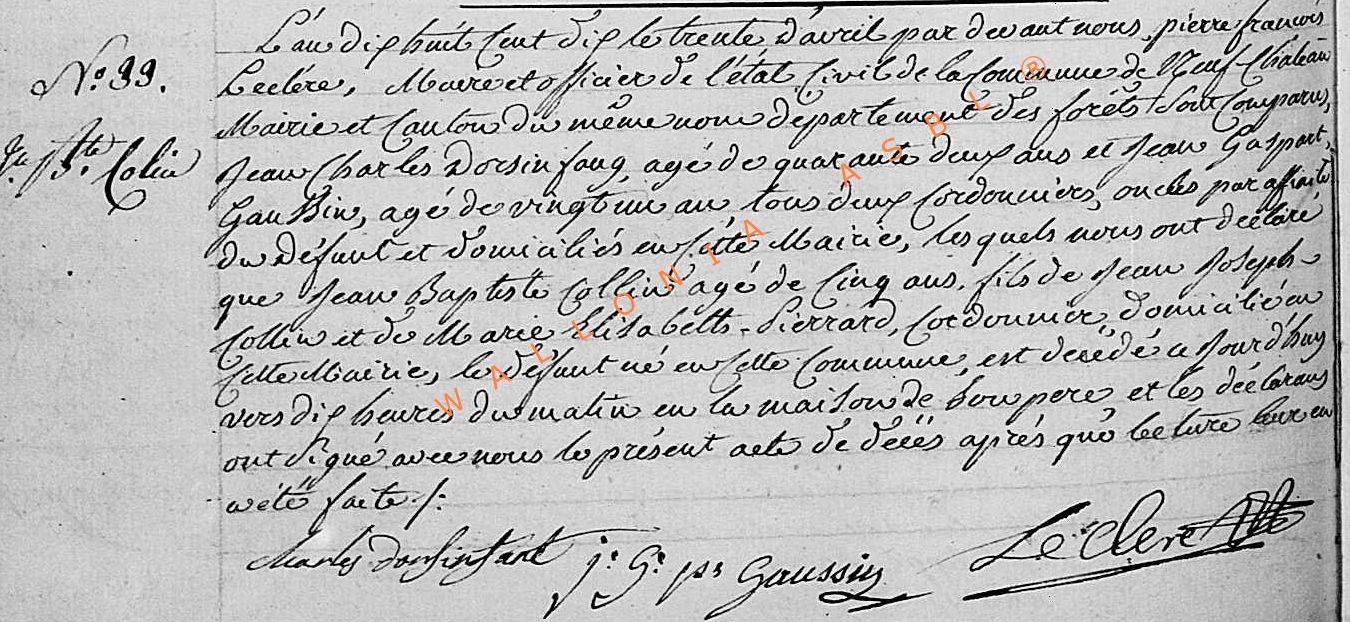 N.° 33.
Jn. Bte. Colin
L'an dix huit Cent dix le trente d'avril par devant nous, pierre françois
Leclere, Maire et officier de l'état Civil de la Commune de Neuf-Château
Mairie et Canton du même nom département des forêts Sont Comparus,
Jean Charles Dorsinfang, agé de quarante deux ans et Jean Gaspart
Gaussin, agé de vingt un an tous deux Cordonniers, oncles par affinité
du Défunt et domiciliés en Cette Mairie, lesquels nous ont déclaré
que Jean Baptiste Collin agé de Cinq ans, fils de Jean Joseph
Collin et de Marie Elisabeth Pierrard, Cordonnier, domicilié en
Cette Mairie, le défunt né en Cette Commune, est décédé ce Jourd'huy
vers dix heures du matin en la maison de Son pere et les déclarans
ont Signé avec nous le présent acte de décès aprés que lecture leur en
a été faite /:
Charles dorsinfant
j.n G. Gaussin
LeClere
WALLONIA ASBL ®